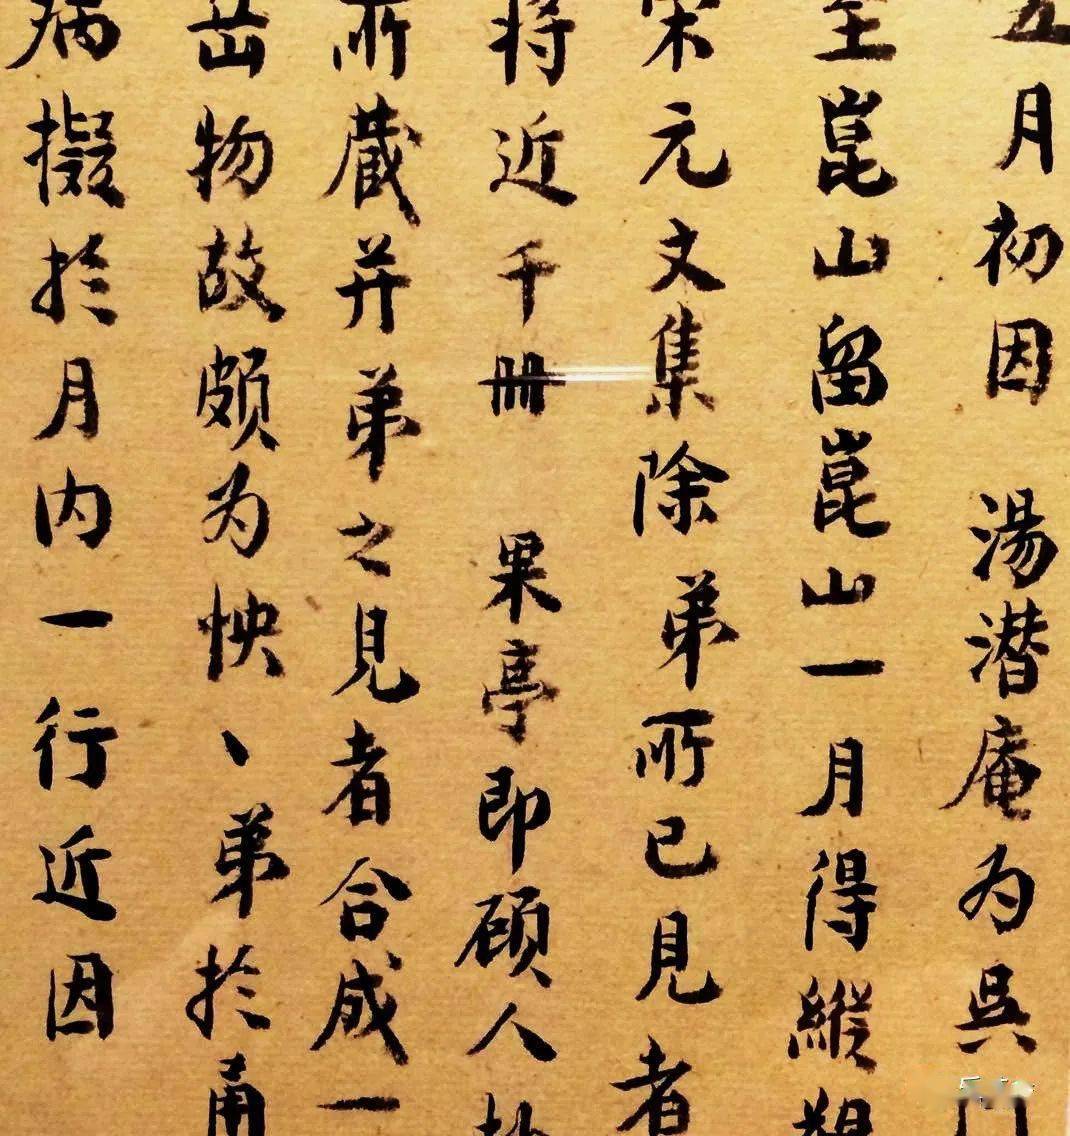 五月初因 湯潜庵为吳門
至崑山留崑山一月得縱觀
宋元文集除弟所已見者
将近千冊 果亭即顧人抄
所蔵并弟之見者合成一
物故頗为怏丶弟於甬
病擬於月内一行近因